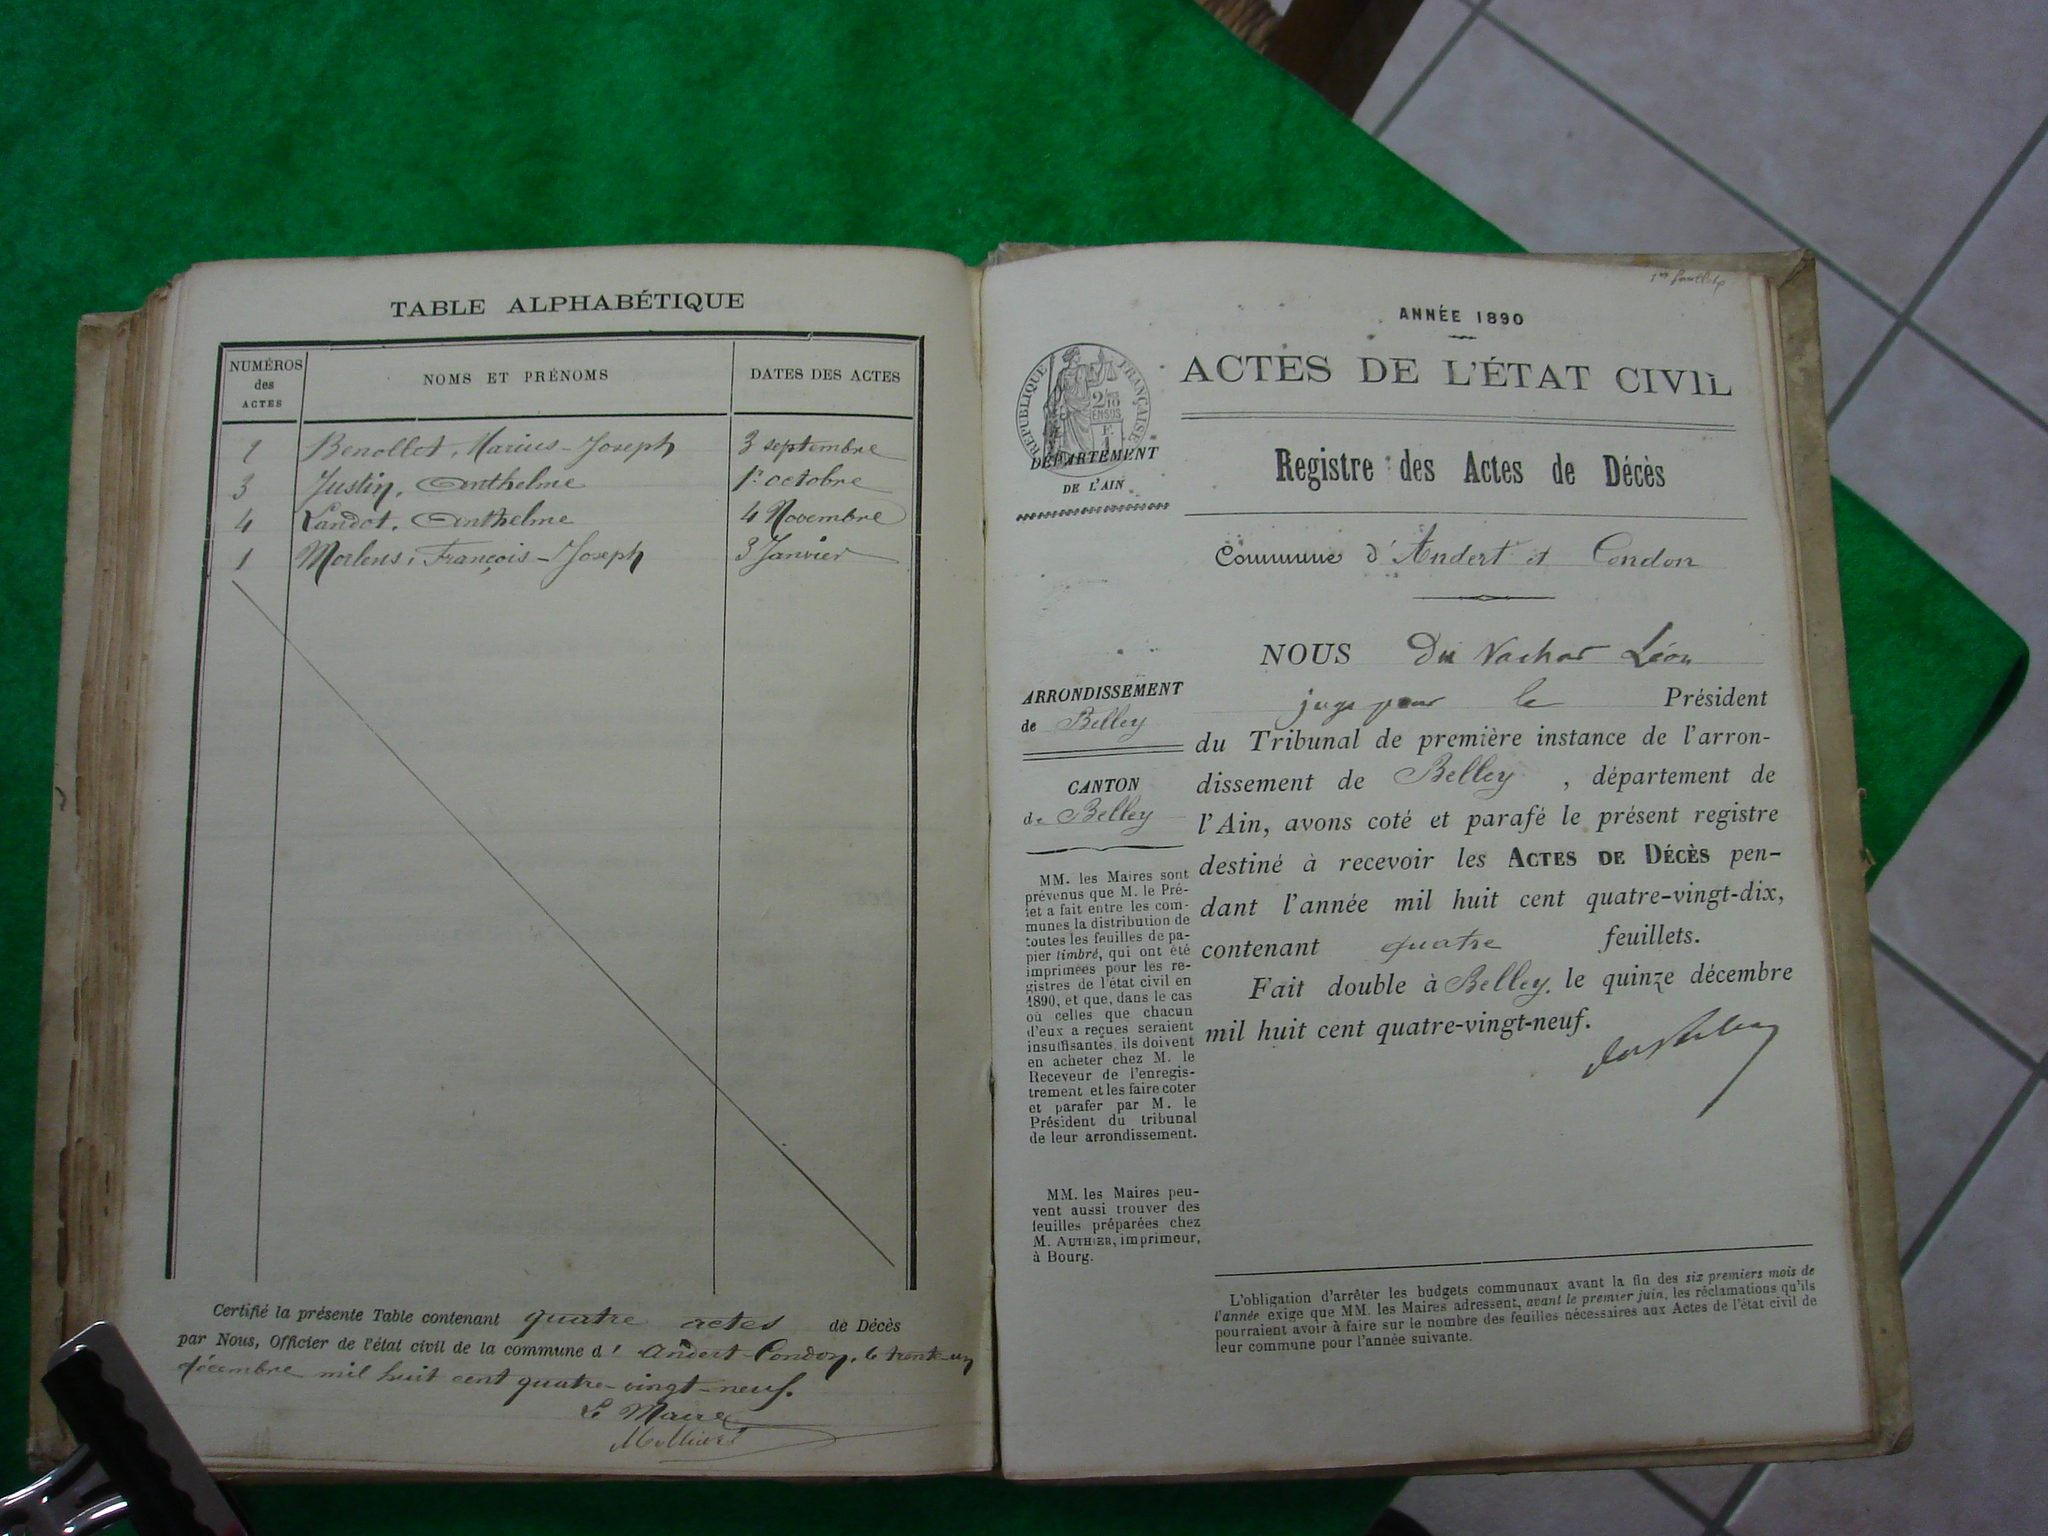 TABLE ALPHABÉTIQUE
NUMÉROS des ACTES
NOMS ET PRÉNOMS
DATES DES ACTES
Benollet, Marius-Joseph 3 septembre
3 Justin, Anthelme 1er octobre
4 Landot, Anthelme 4 Novembre
1 François-Joseph 3 Janvier
Certifié la présente Table contenant quatre actes de Décès
par Nous, Officier de l'état civil de la commune d' Andert-Condon, le trente-un
décembre mil huit cent quatre-vingt-neuf.
Le Maire
ANNÉE 1890
ACTES DE L'ÉTAT CIVIL
RÉPUBLIQUE FRANÇAISE
DÉPARTEMENT
DE L'AIN
Registre des Actes de Décès
Commune d'Andert et Condon
ARRONDISSEMENT
de Belley
CANTON
de Belley
MM. les Maires sont
prévenus que M. le Pré-
fet a fait entre les com-
munes la distribution de
toutes les feuilles de pa-
pier timbré, qui ont été
imprimées pour les re-
gistres de l'état civil en
1890, et que, dans le cas
où celles que chacun
d'eux a reçues seraient
insuffisantes, ils doivent
en acheter chez M. le
Receveur de l'enregis-
trement et les faire coter
et parafer par M. le
Président du tribunal
de leur arrondissement.
MM. les Maires peu-
vent aussi trouver des
feuilles préparées chez
M. AUTHIER, imprimeur,
à Bourg.
NOUS Du Léon
juge pour le Président
du Tribunal de première instance de l'arron-
dissement de Belley, département de
l'Ain, avons coté et parafé le présent registre
destiné à recevoir les ACTES DE DÉCÈS pen-
dant l'année mil huit cent quatre-vingt-dix,
contenant quatre feuillets.
Fait double à Belley, le quinze décembre
mil huit cent quatre-vingt-neuf.
L'obligation d'arrêter les budgets communaux avant la fin des six premiers mois de
l'année exige que MM. les Maires adressent, avant le premier juin, les réclamations qu'ils
pourraient avoir à faire sur le nombre des feuilles nécessaires aux Actes de l'état civil de
leur commune pour l'année suivante.